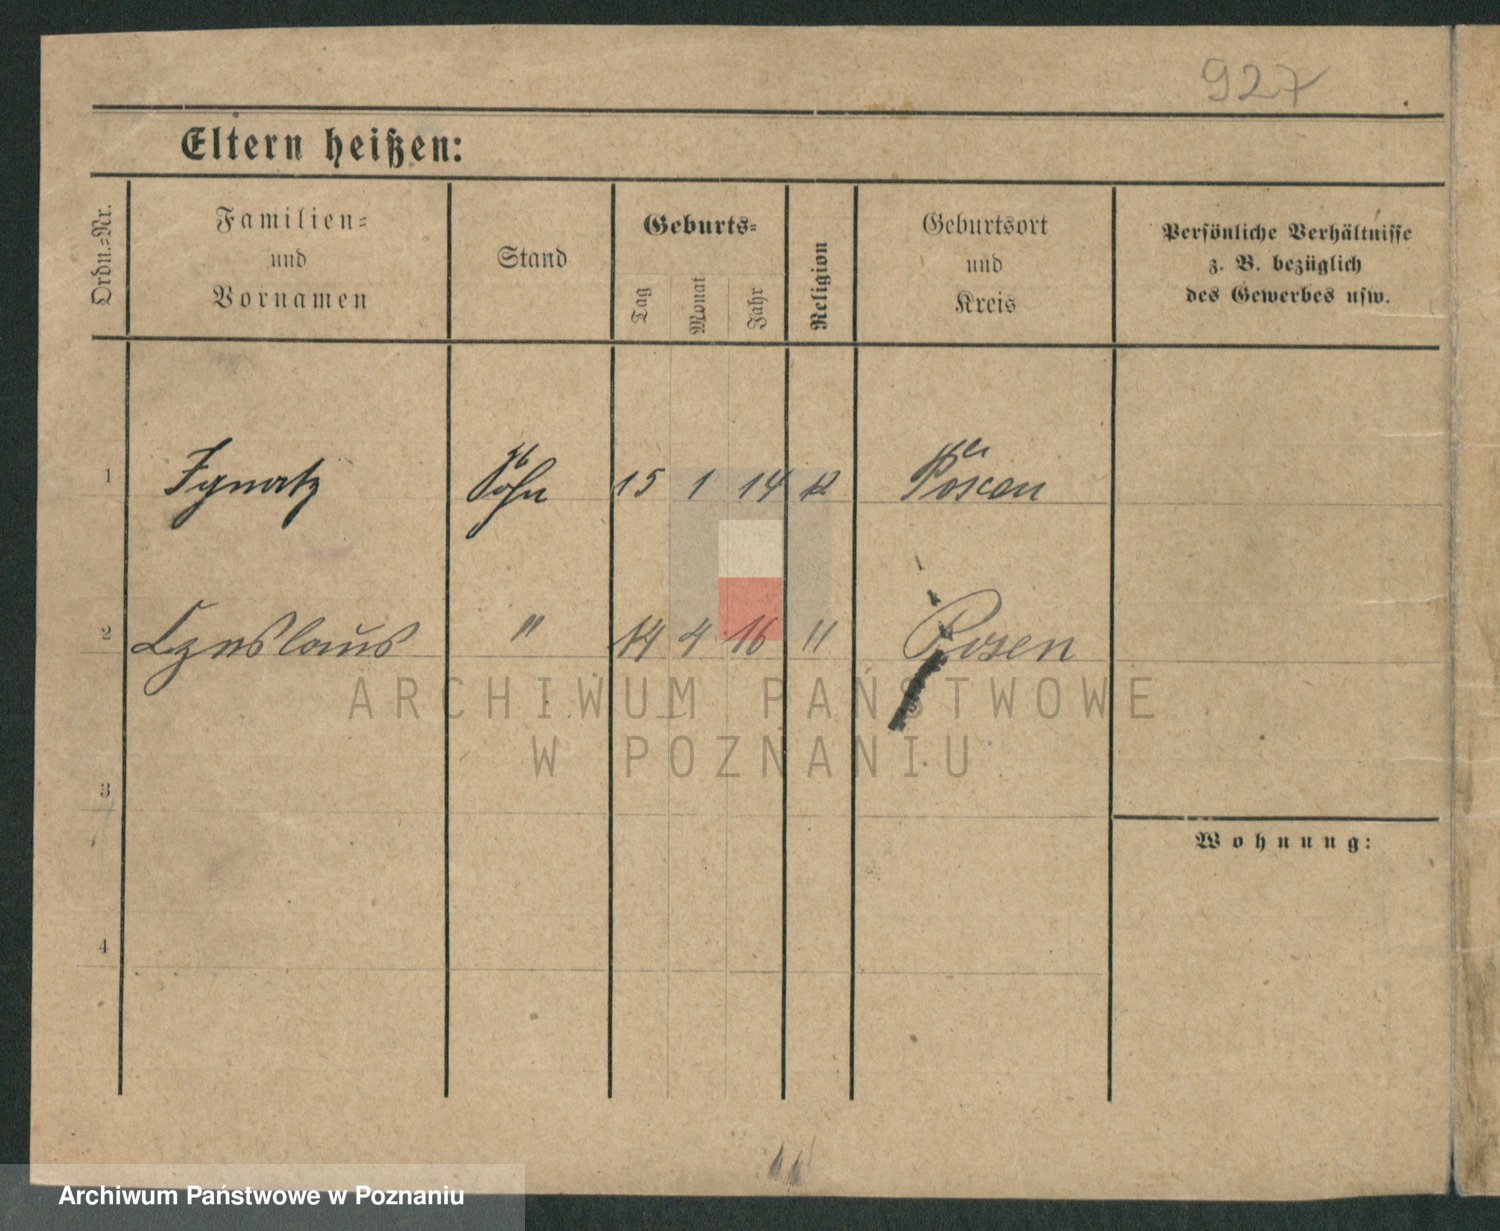 927
Eltern heißen:
Ordn.-Nr.
Familien-
und
Vornamen
Stand
Geburts-
Tag
Monat
Jahr
Religion
Geburtsort
und
Kreis
Persönliche Verhältnisse
z. B. bezüglich
des Gewerbes usw.
1 Ignatz Sohn 15 1 14 Posen
2 Czeslaus " 14 4 16 " Posen
ARCHIWUM PAŃSTWOWE
W POZNANIU
3
Wohnung:
4
Archiwum Państwowe w Poznaniu